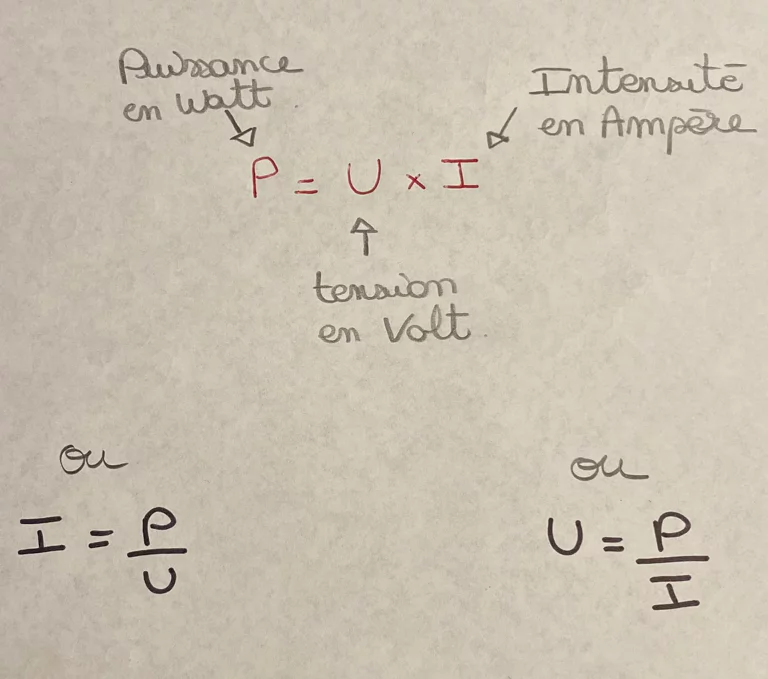 Puissance
en Watt.
Intensité
en Ampère
P = U × I
tension
en Volt.
ou
I = P/U
ou
U = P/I